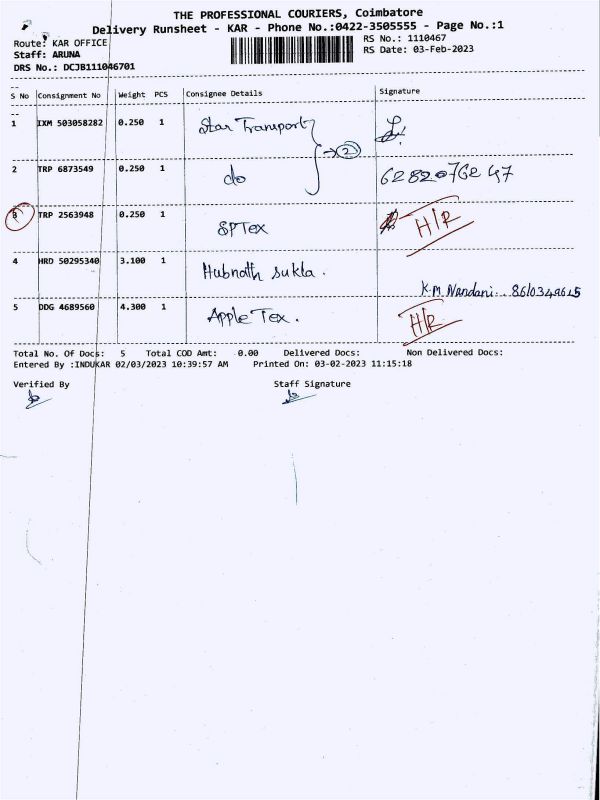 THE PROFESSIONAL COURIERS, Coimbatore
Delivery Runsheet - KAR - Phone No.:0422-3505555 - Page No.:1
Route: KAR OFFICE
RS No.: 1110467
Staff: ARUNA
RS Date: 03-Feb-2023
DRS No.: DCJB111046701
S No Consignment No Weight PCS Consignee Details Signature
1 IXM 503058282 0.250 1 Star Transport
2 TRP 6873549 0.250 1 do 2 6282076247
3 TRP 2563948 0.250 1 SPTex H/R
4 HRD 50295340 3.100 1 Hubnath Sukla. K.M. Nandani.
5 DDG 4689560 4.300 1 Apple Tex. H/R
Total No. Of Docs: 5 Total COD Amt: 0.00 Delivered Docs: Non Delivered Docs:
Entered By :INDUKAR 02/03/2023 10:39:57 AM Printed On: 03-02-2023 11:15:18
Verified By Staff Signature